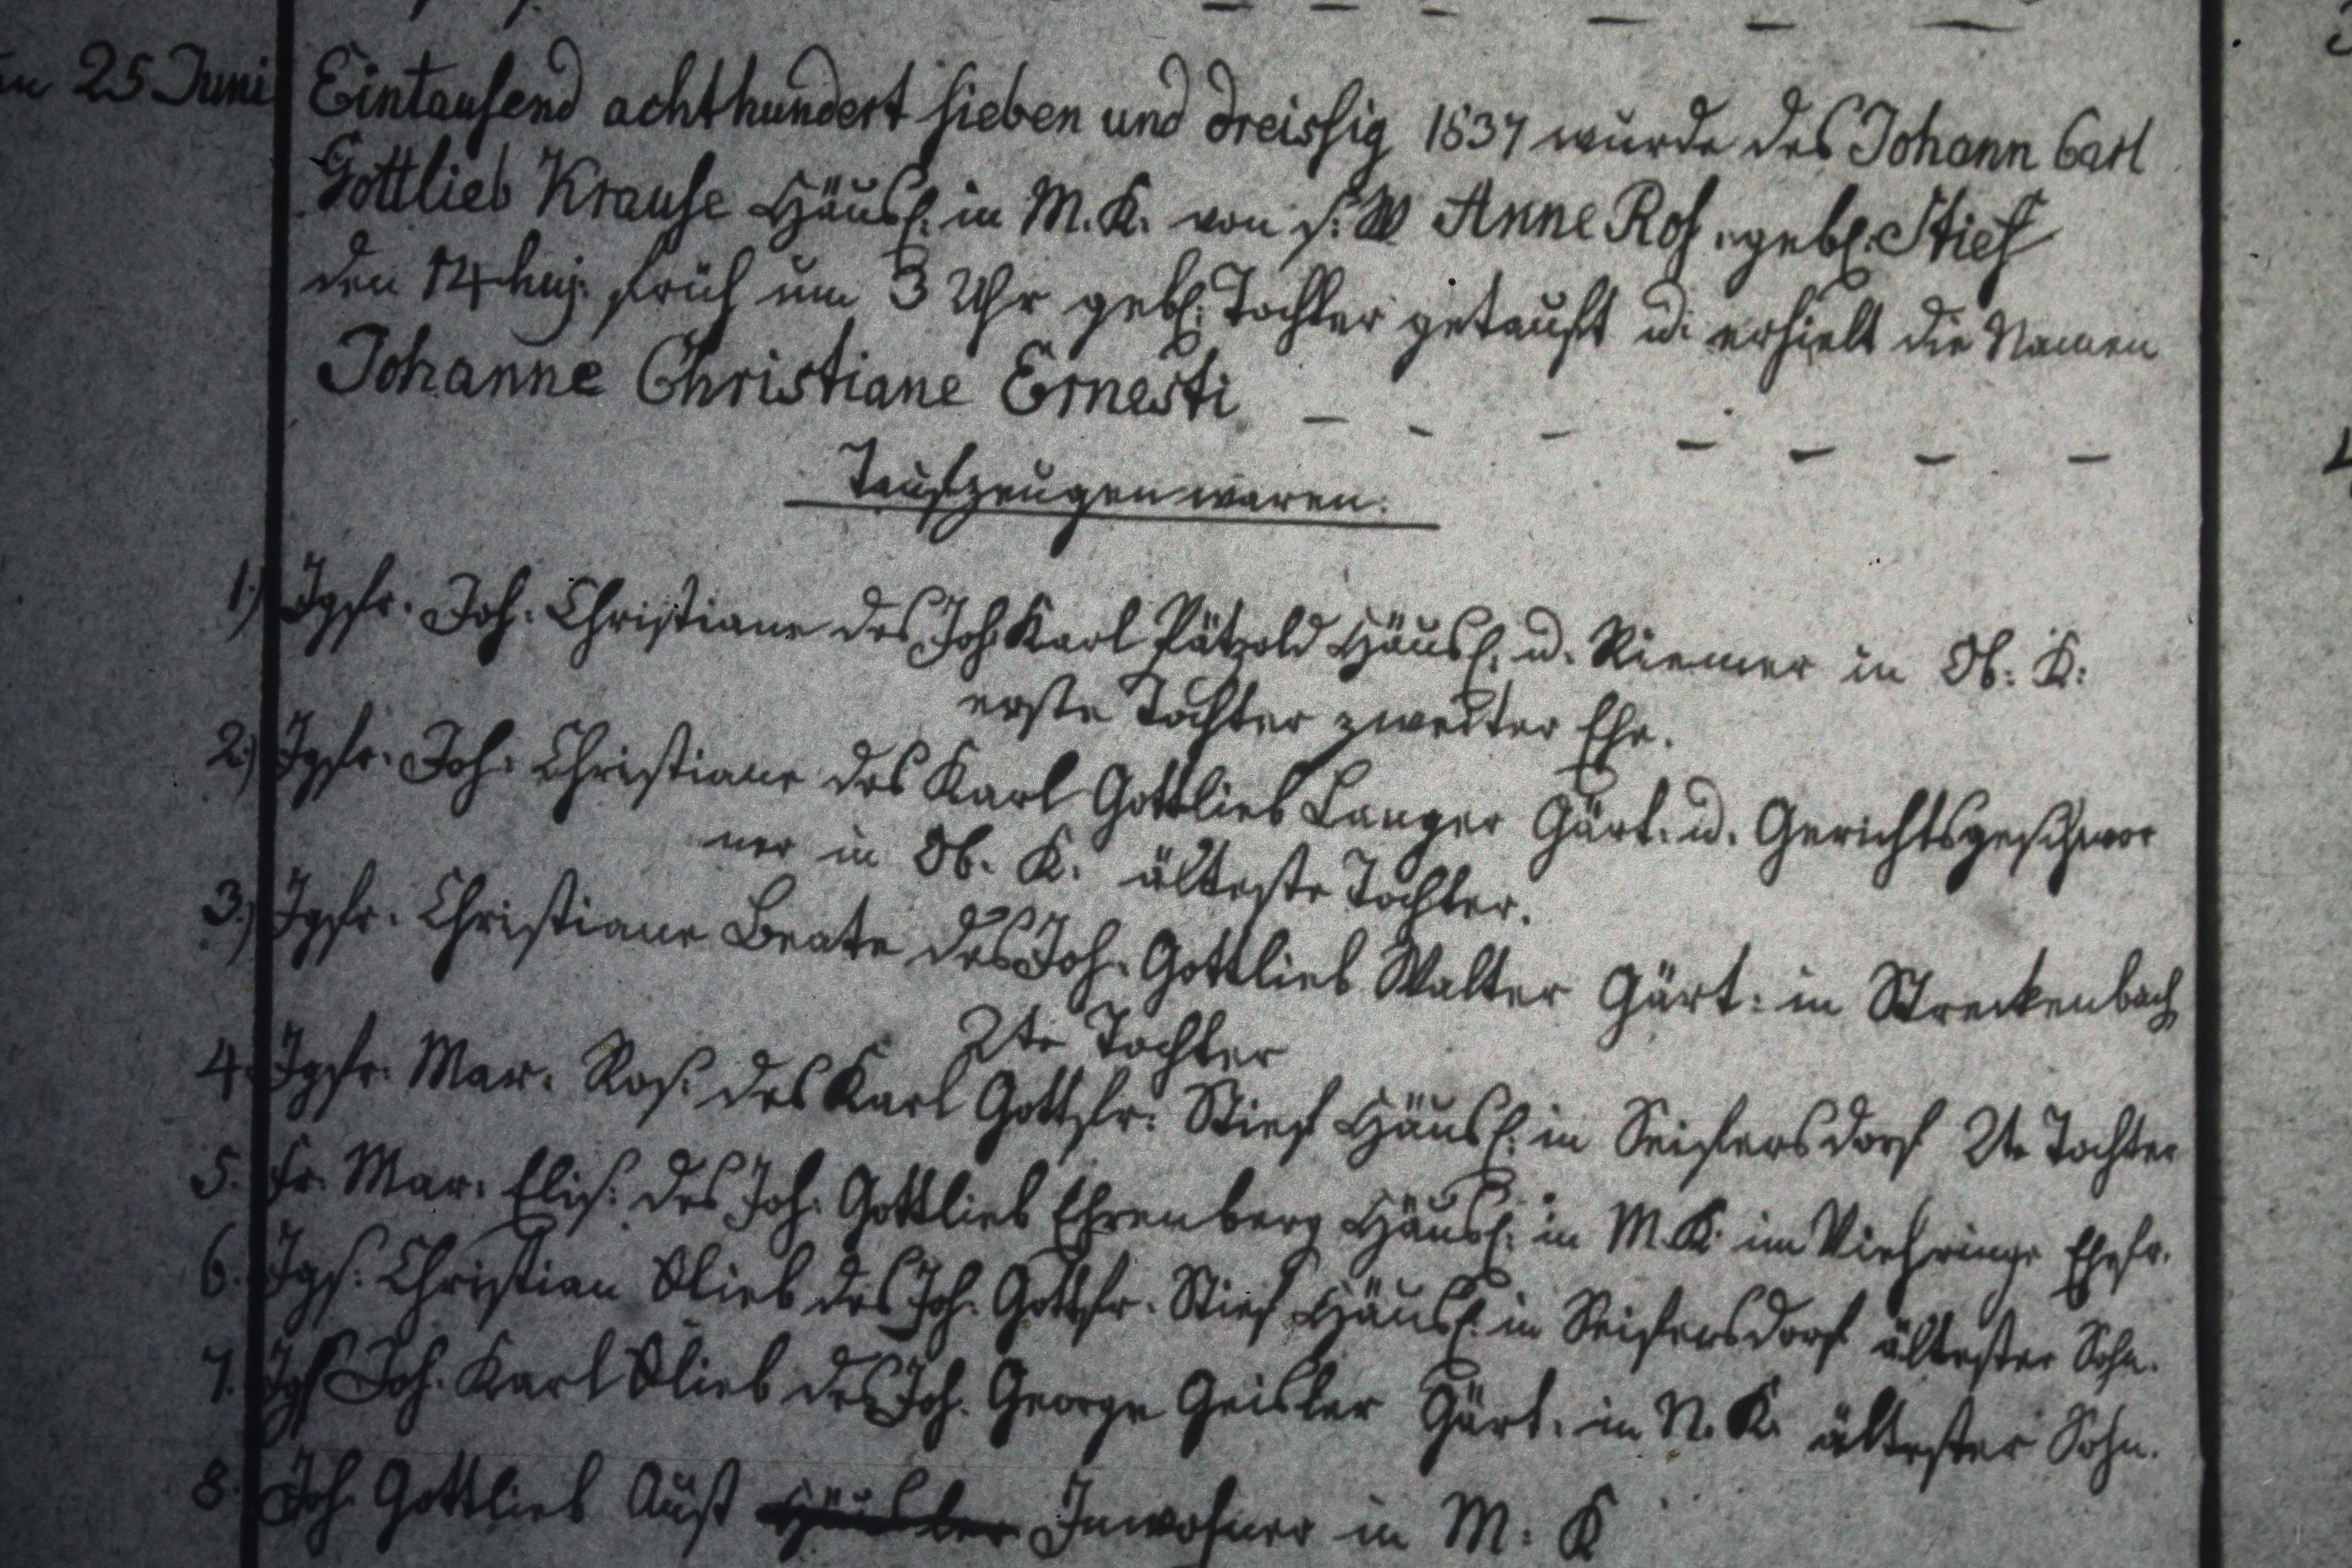 25 Juni Eintausend achthundert sieben und dreissig 1837 wurde des Johann Carl
Gottlieb Krause Häusl. in M. K. von s. W Anne Ros. gebl. Stief
den 14 huj. früh um 3 Uhr gebl. Tochter getauft u. erhielt die Namen
Johanne Christiane Ernesti
Taufzeugen waren:
1.) Jgfr. Joh: Christiane des Joh Karl Pätzold Häusl. u. Riemer in Ob: K:
erste Tochter zweiter Ehe.
2.) Jgfr. Joh: Christiane des Karl Gottlieb Langer Gärt. u. Gerichtsgeschwor
ner in Ob. K. älteste Tochter.
3.) Jgfr. Christiane Beate des Joh. Gottlieb Walter Gärt: in Streckenbach
2te Tochter
4. Jgfr. Mar. Ros. des Karl Gottfr. Stief Häusl. in Seifersdorf 2te Tochter
5. Fr. Mar. Elis. des Joh. Gottlieb Ehrenberg Häusl. in M. K. im Viehringe Ehefr.
6. Jgs. Christian Glieb des Joh. Gottfr. Stief Häusl. in Seifersdorf ältester Sohn.
7. Jgs Joh. Karl Glieb des Joh. George Geisler Gärt. in N. K. ältester Sohn.
8. Joh. Gottlieb Aust Häusler Inwohner in M. K